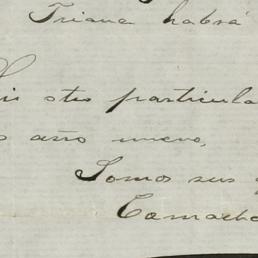 Triana habrá
otro particula
año nuevo,
Somos sus
Camacho